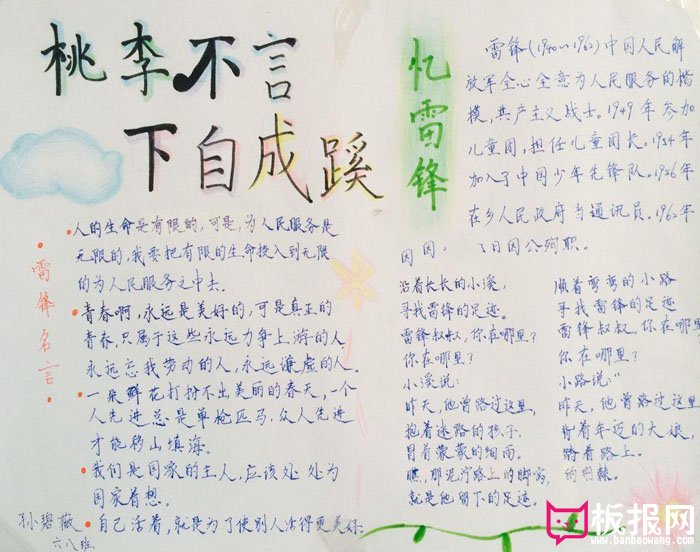 桃李不言
下自成蹊
忆雷锋
雷锋(1940~1962)中国人民解
放军全心全意为人民服务的楷
模,共产主义战士。1949年参加
儿童团,担任儿童团长。1954年
加入了中国少年先锋队。1956
在乡人民政府当通讯员。1960年
日因公殉职。
雷锋名言:
人的生命是有限的,可是,为人民服务是
无限的,我要把有限的生命投入到无限
的为人民服务之中去。
青春啊,永远是美好的,可是真正的
青春,只属于这些永远力争上游的人
永远忘我劳动的人,永远谦虚的人.
一朵鲜花打扮不出美丽的春天,一个
人先进总是单枪匹马,众人先进
才能移山填海。
我们是国家的主人,应该处处为
国家着想。
自己活着,就是为了使别人活得更美好.
孙碧薇
六八班
沿着长长的小溪,
寻找雷锋的足迹。
雷锋叔叔,你在哪里?
你在哪里?
小溪说:
昨天,他曾路过这里,
抱着迷路的孩子,
冒着蒙蒙的细雨。
瞧,那泥泞路上的脚窝,
就是他留下的足迹。
顺着弯弯的小路
寻找雷锋的足迹
雷锋叔叔,你在哪里
你在哪里?
小路说:"
昨天,他曾路过这里
背着年迈的大娘,
踏着路上。
的荆棘。
板报网
www.banbaowang.com